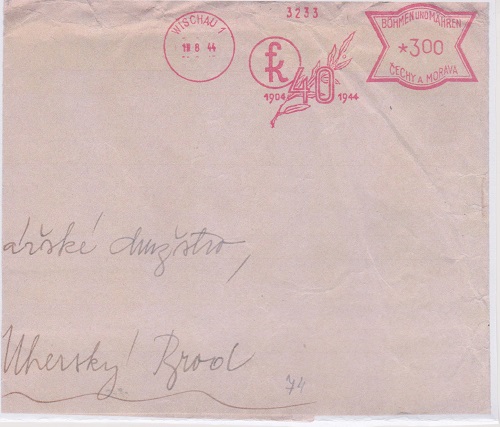 3233
WISCHAU 1
19.6.44
fk
40
1904 1944
BÖHMEN UND MÄHREN
*300
ČECHY A MORAVA
ářské družstvo,
Uherský Brod
74